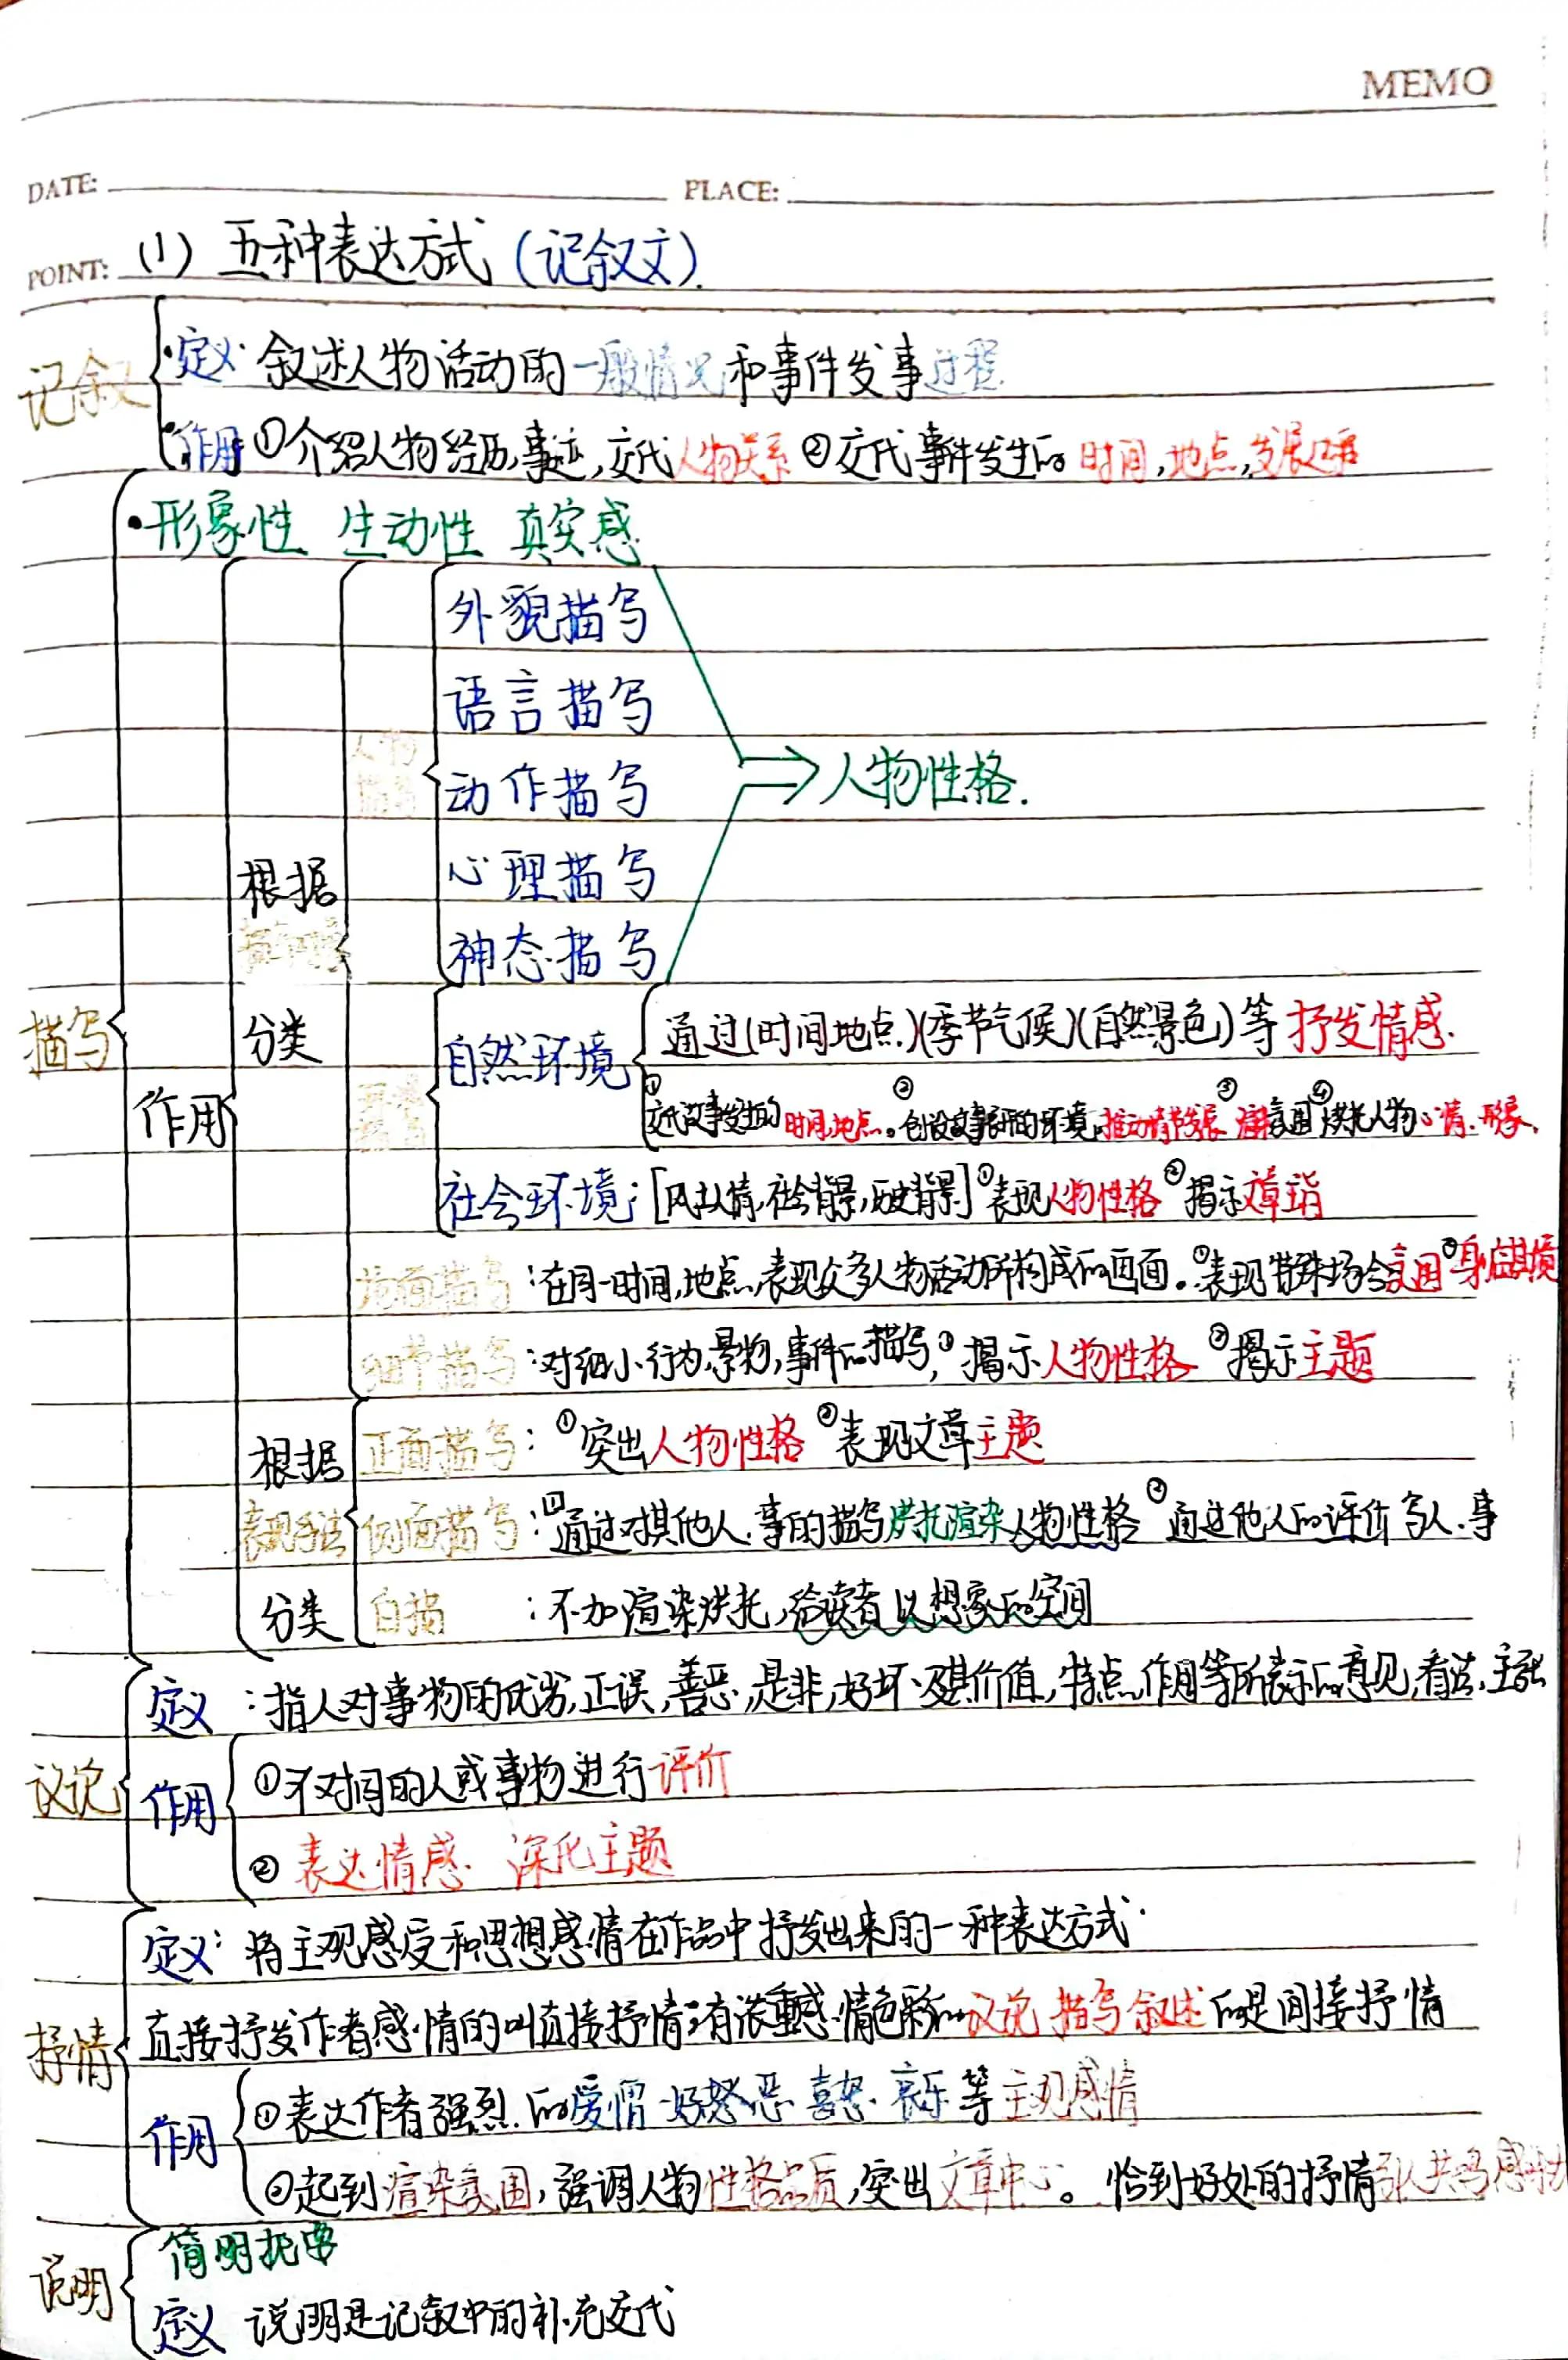 MEMO
DATE:
PLACE:
POINT: (1) 五种表达方式 (记叙文).
记叙
定义: 叙述人物活动的一般情况和事件发事过程
作用 ①介绍人物经历,事迹,交代人物关系 ②交代事件发生的时间,地点,发展
·形象性 生动性 真实感
外貌描写
语言描写
人物描写
动作描写
⇒人物性格.
心理描写
神态描写
根据
分类
描写
作用
自然环境
通过(时间地点)(季节气候)(自然景色)等抒发情感.
①交代故事发生的时间,地点。②创设故事的环境,推动情节发展 ③渲染氛围 ④烘托人物心情.形象.
社会环境:[风土人情,社会背景,历史背景]①表现人物性格 ②揭示文章主旨
场面描写:在同一时间,地点,表现众多人物活动所构成的画面。①表现特殊场合氛围②身临其境
细节描写:对细小行为,景物,事件的描写,①揭示人物性格 ②揭示主题
根据
表现手法
分类
正面描写:①突出人物性格 ②表现文章主题
侧面描写:①通过对其他人.事的描写烘托渲染人物性格 ②通过他人的评价写人.事
白描 :不加渲染烘托,给读者以想象的空间
议论
定义 :指人对事物的优劣,正误,善恶,是非,好坏.及其价值,特点,作用等所表示的意见,看法,主张
作用
①不对同的人或事物进行评价
② 表达情感. 深化主题
抒情
定义: 将主观感受和思想感情在作品中抒发出来的一种表达方式.
直接抒发作者感情的叫直接抒情;有浓重感情色彩的议论 描写 叙述的是间接抒情
作用
①表达作者强烈.的爱憎.好恶 喜怒.哀乐等主观感情
②起到渲染氛围,强调人物性格品质,突出文章中心。恰到好处的抒情引人共鸣感动
说明
简明扼要
定义 说明是记叙中的补充交代